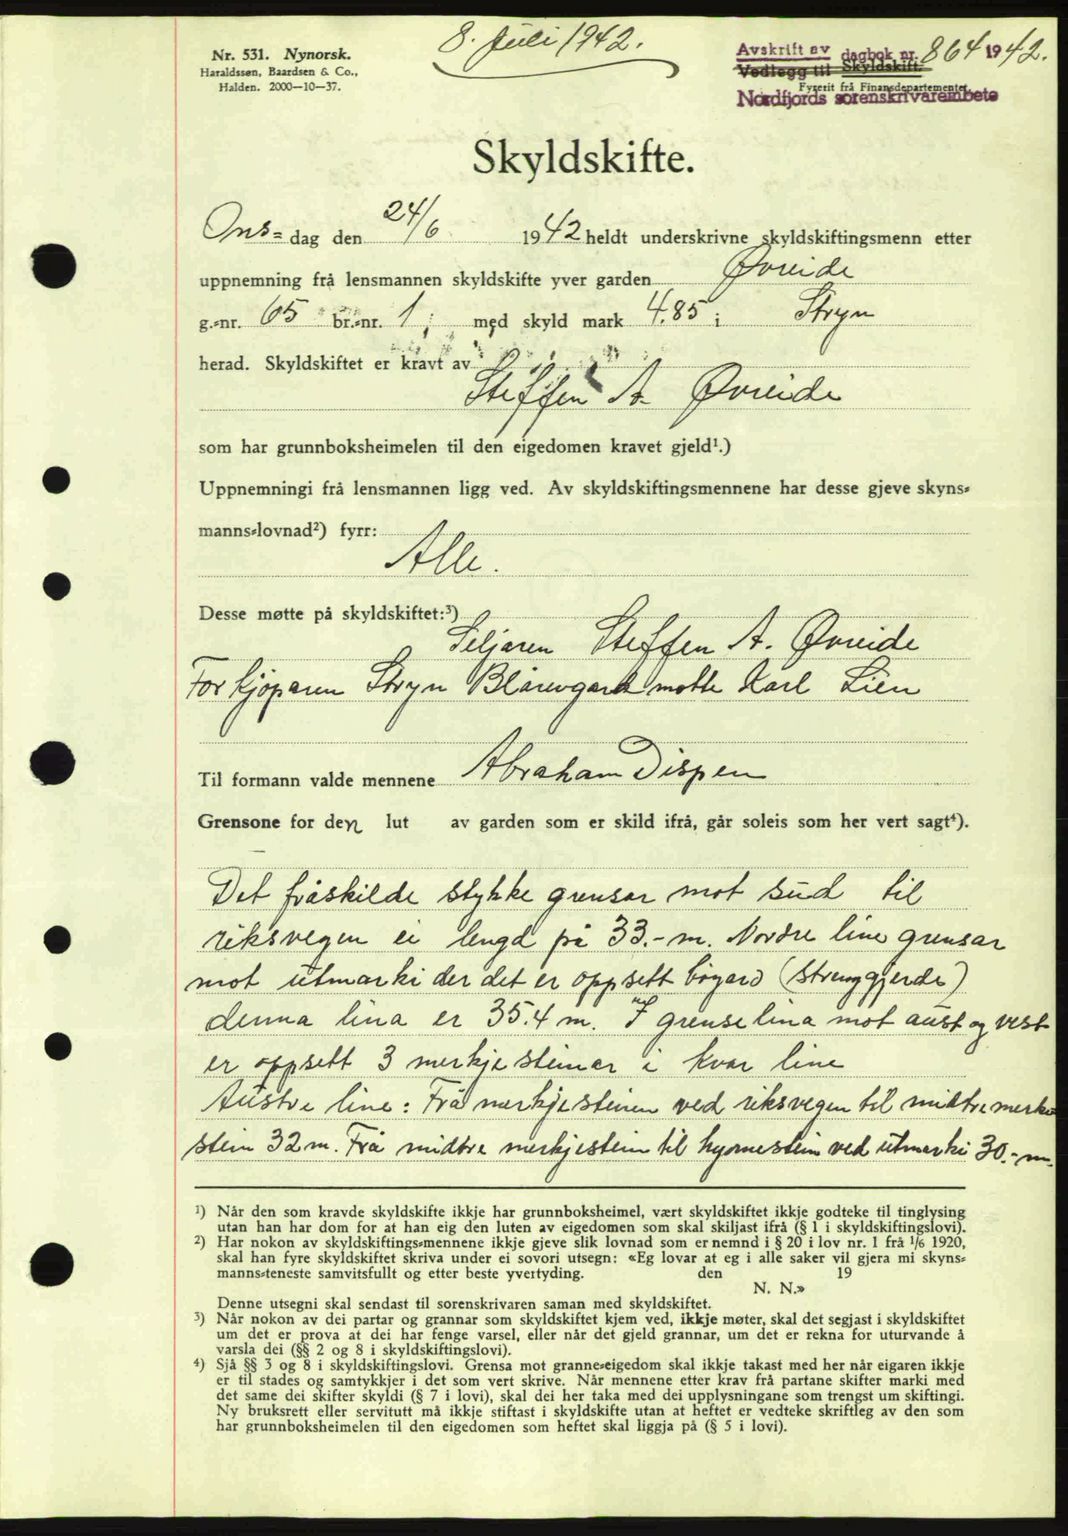 8. Juli 1942.
Nr. 531. Nynorsk.
Haraldssøn, Baardsen & Co.,
Halden. 2000—10—37.
Avskrift av dagbok nr. 864 1942.
Vedlegg til Skyldskift.
Fyrerit frå Finansdepartementet
Nordfjords sorenskrivarembete
Skyldskifte.
Ons- dag den 24/6 1942 heldt underskrivne skyldskiftingsmenn etter
uppnemning frå lensmannen skyldskifte yver garden Øvreide
g.-nr. 65 br.-nr. 1, med skyld mark 4.85 i Stryn
herad. Skyldskiftet er kravt av
Steffen A. Øvreide
som har grunnboksheimelen til den eigedomen kravet gjeld¹.)
Uppnemningi frå lensmannen ligg ved. Av skyldskiftingsmennene har desse gjeve skyns-
manns-lovnad²) fyrr:
Alle.
Desse møtte på skyldskiftet:³)
Seljaren Steffen A. Øvreide
For kjøparen Stryn motte Karl Lien
Til formann valde mennene Abraham Dispen
Grensone for den lut av garden som er skild ifrå, går soleis som her vert sagt⁴).
Det fråskilde stykke grensar mot sud til
riksvegen ei lengd på 33.- m. Nordre line grensar
mot utmarki der det er oppsett bøgard (strenggjerde)
denna lina er 35.4 m. I grenselina mot aust og vest
er oppsett 3 merkjesteinar i kvar line
Austre line: Frå merkjesteinen ved riksvegen til midtre merke-
stein 32 m. Frå midtre merkjestein til hyrnestein ved utmarki 30.- m.
¹) Når den som kravde skyldskifte ikkje har grunnboksheimel, vært skyldskiftet ikkje godteke til tinglysing
utan han har dom for at han eig den luten av eigedomen som skal skiljast ifrå (§ 1 i skyldskiftingslovi).
²) Har nokon av skyldskiftings-mennene ikkje gjeve slik lovnad som er nemnd i § 20 i lov nr. 1 frå ¹/₆ 1920,
skal han fyre skyldskiftet skriva under ei sovori utsegn: «Eg lovar at eg i alle saker vil gjera mi skyns-
manns-teneste samvitsfullt og etter beste yvertyding. den 19
N. N.»
Denne utsegni skal sendast til sorenskrivaren saman med skyldskiftet.
³) Når nokon av dei partar og grannar som skyldskiftet kjem ved, ikkje møter, skal det segjast i skyldskiftet
um det er prova at dei har fenge varsel, eller når det gjeld grannar, um det er rekna for uturvande å
varsla dei (§§ 2 og 8 i skyldskiftingslovi).
⁴) Sjå §§ 3 og 8 i skyldskiftingslovi. Grensa mot granne-eigedom skal ikkje takast med her når eigaren ikkje
er til stades og samtykkjer i det som vert skrive. Når mennene etter krav frå partane skifter marki med
det same dei skifter skyldi (§ 7 i lovi), skal dei her taka med dei upplysningane som trengst um skiftingi.
Ny bruksrett eller servitutt må ikkje stiftast i skyldskifte utan at heftet er vedteke skriftleg av den som
har grunnboksheimelen til den eigedomen som heftet skal liggja på (§ 5 i lovi).